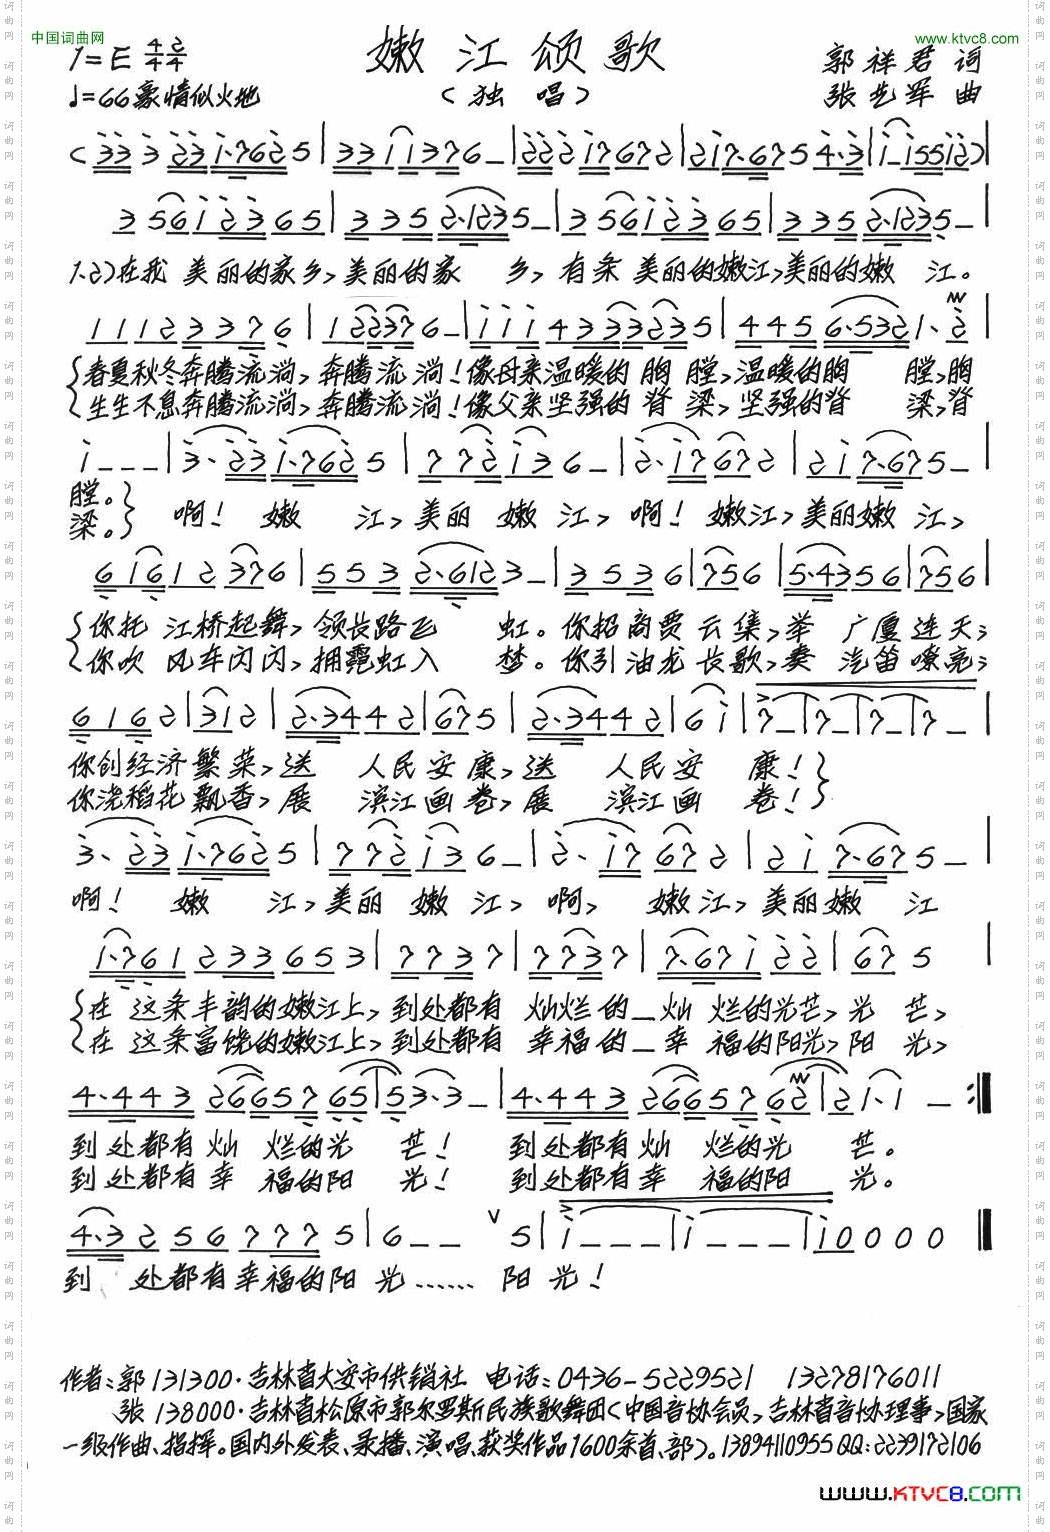 中国词曲网
www.ktvc8.com
1=E 4/4 2/4
嫩江颂歌
郭祥君 词
♩=66豪情似火地
(独 唱)
张艺军 曲
(33 3 23 1·7625 | 33 1 1376_ | 222 17672 | 217·675 4·3 | 1_15512) |
3 561 23 65 | 335 2·1235_ | 3 561 23 65 | 335 2·1235_ |
1.2)在我 美丽的家乡,美丽的家 乡,有条 美丽的嫩江,美丽的嫩 江。
1112 3376 | 122376_ | 111 4333235 | 445 6·5321·2 |
春夏秋冬奔腾流淌,奔腾流淌!像母亲温暖的胸 膛,温暖的胸 膛,胸
生生不息奔腾流淌,奔腾流淌!像父亲坚强的脊 梁,坚强的脊 梁,脊
1___ | 3·23 1·7625 | 772136_ | 2·17672 | 217·675_ |
膛。 啊! 嫩 江,美丽 嫩 江,啊! 嫩江,美丽嫩 江,
梁。
61612376 | 553 2·6123_ | 3536 | 756 | 5·4356 | 756 |
你托 江桥起舞,领长路飞 虹。你招商贾云集,举 广厦连天;
你吹 风车闪闪,拥霓虹入 梦。你引油龙长歌,奏 汽笛嘹亮;
6162 | 312 | 2·3442 | 675 | 2·3442 | 61 | 7_ | 7_ | 7_ | 7_ |
你创经济繁荣,送 人民安 康,送 人民安 康!
你浇稻花飘香,展 滨江画 卷,展 滨江画 卷!
3·23 1·7625 | 772136_ | 2·17672 | 217·675_ |
啊! 嫩 江,美丽 嫩 江,啊, 嫩江,美丽嫩 江
1·761 233 653 | 7737 | 7737 | 7·67122 | 675 |
在 这条丰韵的嫩江上,到处都有 灿烂的_灿 烂的光芒,光 芒,
在 这条富饶的嫩江上,到处都有 幸福的_幸 福的阳光,阳 光,
4·443 26657 65 | 53·3_ | 4·443 26657 62 | 21·1_ :|
到处都有灿 烂的光 芒! 到处都有灿 烂的光 芒。
到处都有幸 福的阳 光! 到处都有幸 福的阳 光。
4·32 56 7775 | 6__ 5 | 1___ | 1___ | 10000 |
到 处都有幸福的阳 光…… 阳 光!
作者:郭 131300·吉林省大安市供销社 电话:0436-5229521 13278176011
张 138000·吉林省松原市郭尔罗斯民族歌舞团(中国音协会员,吉林省音协理事,国家
一级作曲、指挥。国内外发表、录播、演唱、获奖作品1600余首、部)。13894110955 QQ:2239172106
www.KTVC8.COM